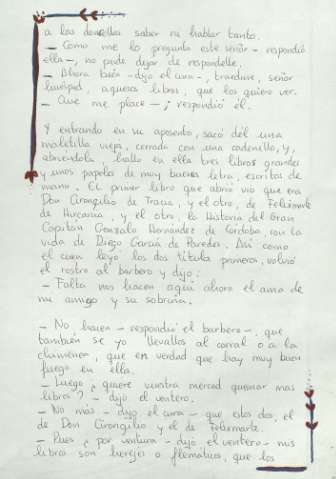 a las doncellas saber ni hablar tanto.
- Como me lo pregunta este señor - respondió
ella -, no pude dejar de respondelle.
- Ahora bien - dijo el cura -, traedme, señor
huésped, aquesos libros, que los quiero ver.
- Que me place -, respondió él.
Y entrando en su aposento, sacó del una
maletilla vieja, cerrada con una cadenilla, y,
abriéndola, halló en ella tres libros grandes
y unos papeles de muy buena letra, escritos de
mano. El primer libro que abrió vio que era
Don Cirongilio de Tracia, y el otro, de Felixmarte
de Hircania, y el otro, la Historia del Gran
Capitán Gonzalo Hernández de Córdoba con la
vida de Diego García de Paredes. Así como
el cura leyó los dos títulos primeros, volvió
el rostro al barbero y dijo:
- Falta nos hacen aquí ahora el ama de
mi amigo y su sobrina.
- No hacen - respondió el barbero -, que
también se yo llevallos al corral o a la
chimenea, que en verdad que hay muy buen
fuego en ella.
- Luego ¿quiere vuestra merced quemar mas
libros? - dijo el ventero.
- No mas - dijo el cura - que estos dos, el
de Don Cirongilio y el de Felixmarte.
- Pues ¿por ventura - dijo el ventero - mis
libros son herejes o flemáticos, que los